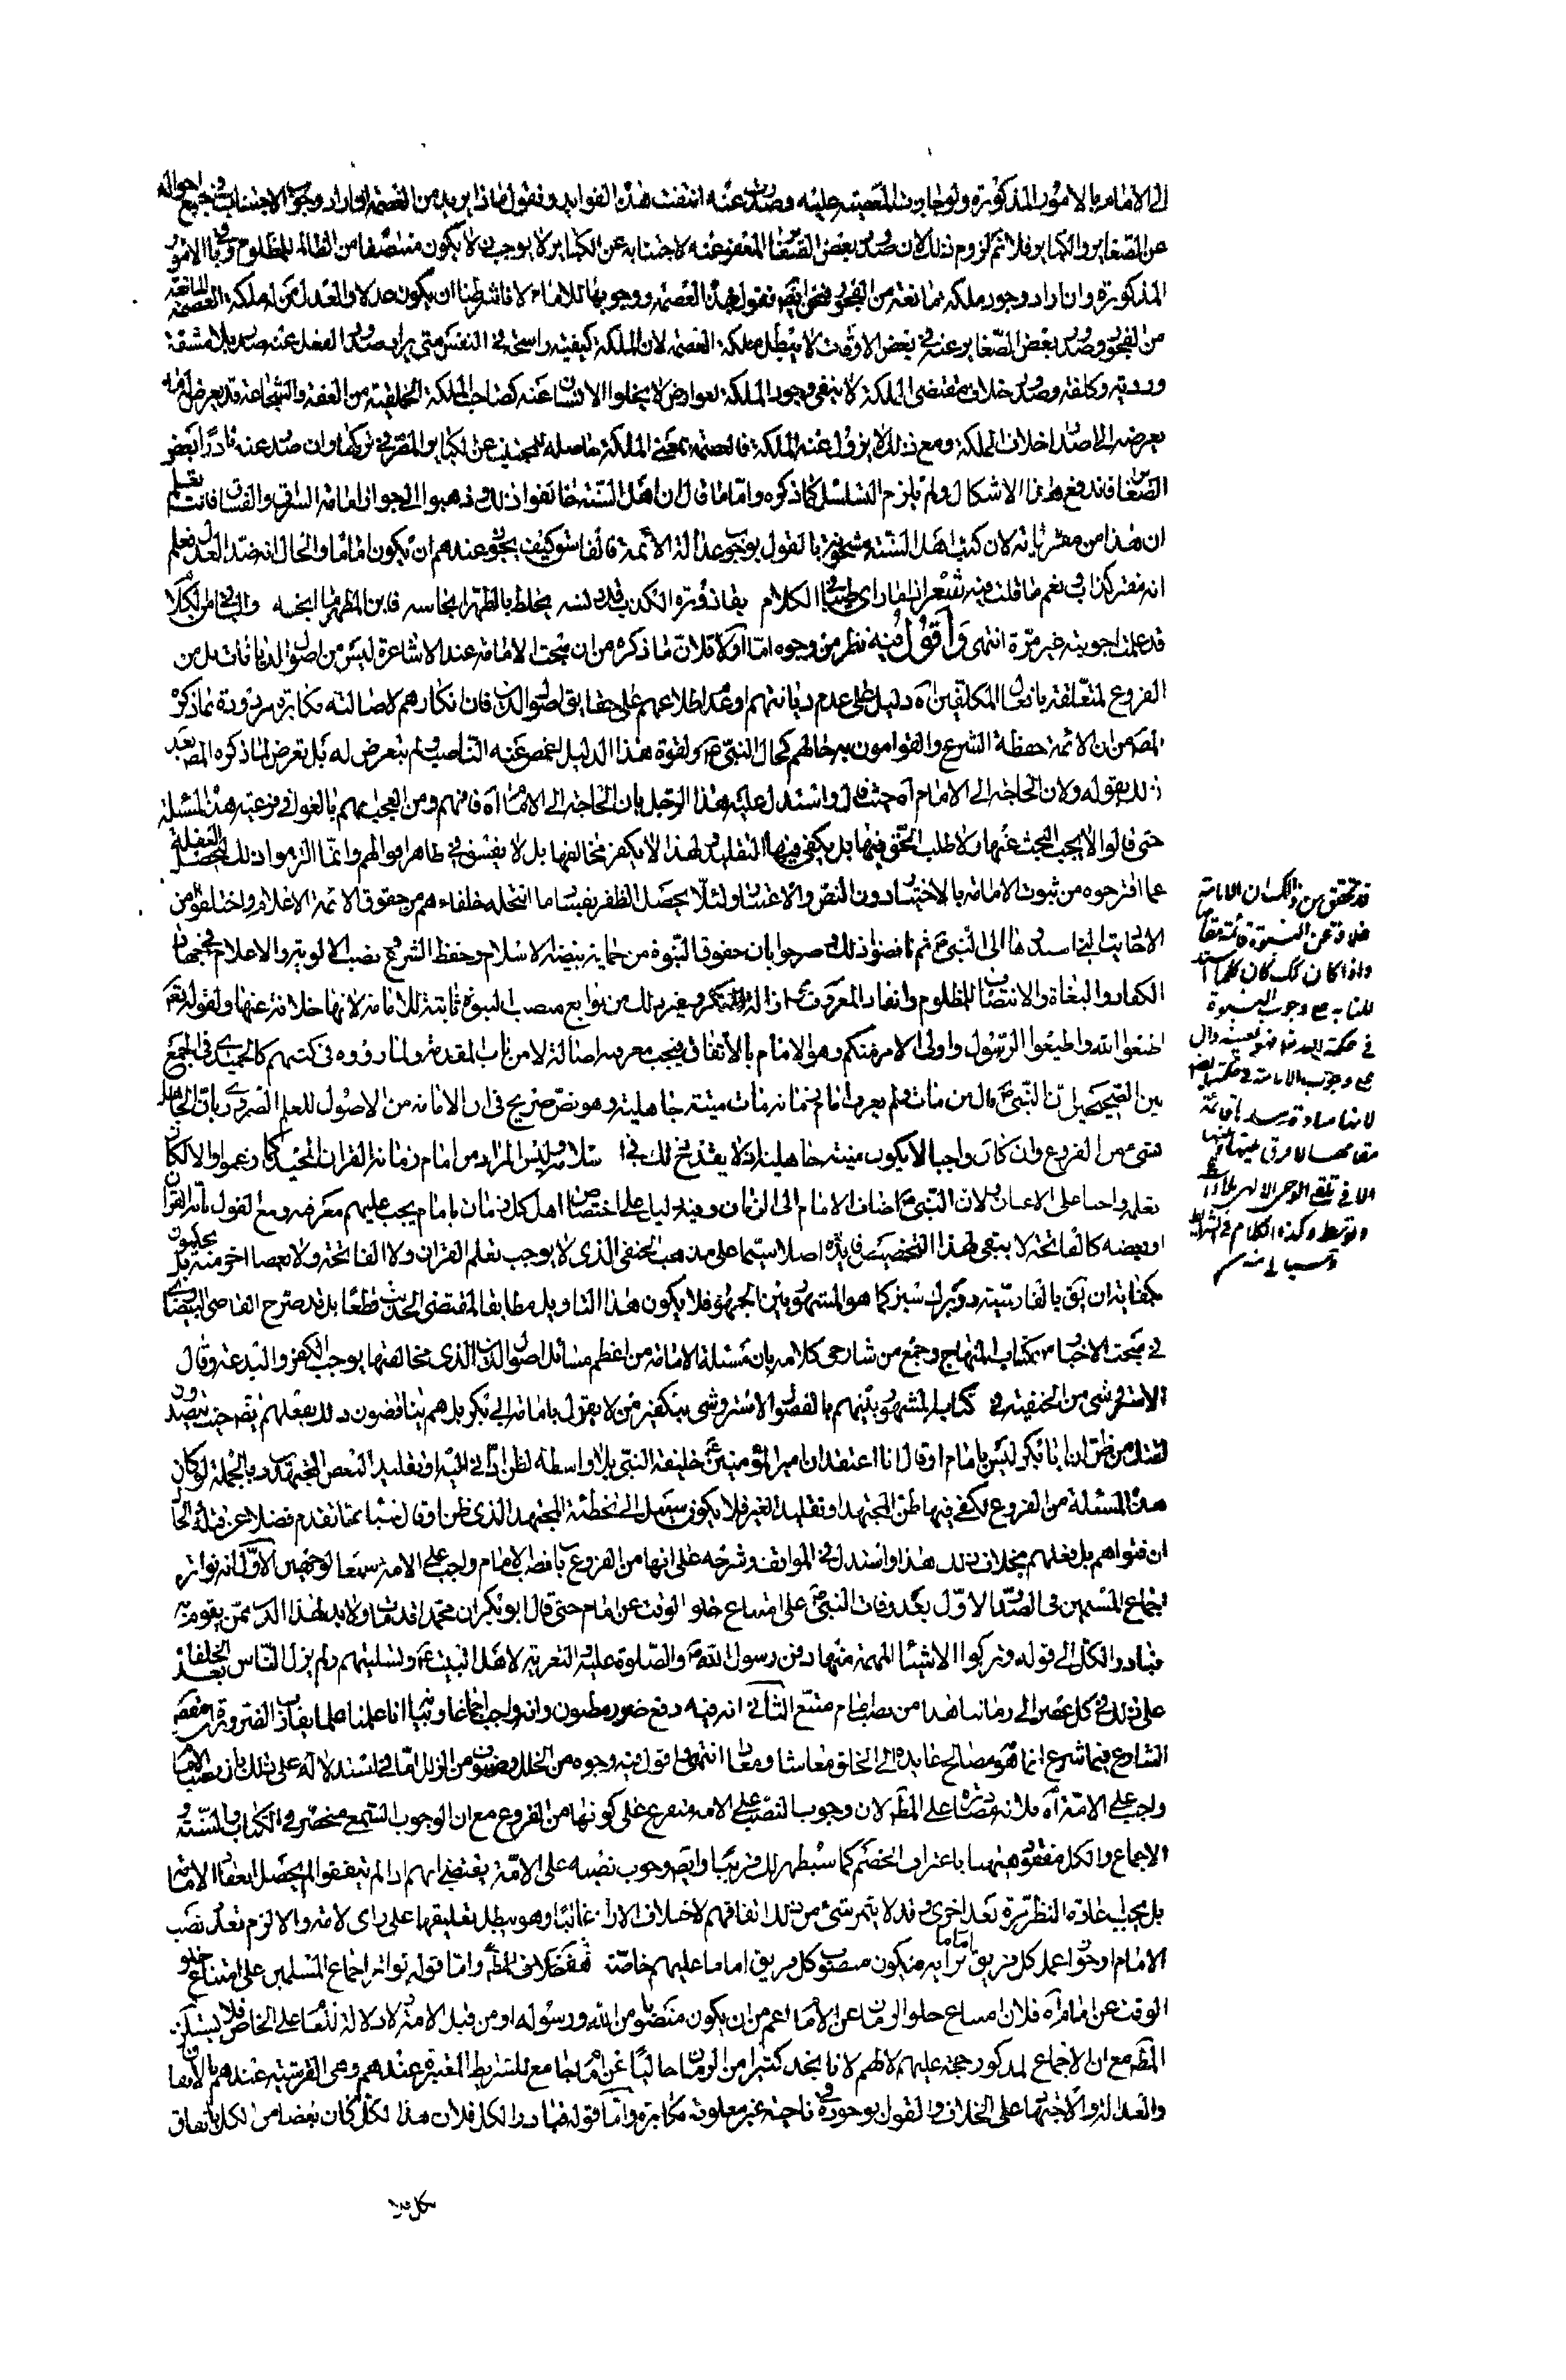 الى الامام بالامور المذكورة ولو جازت المعصية عليه وصدرت عنه انتفت هذه الفوايد ونقول ماذا يريد من العصمة ان اراد وجوب الاجتناب في جميع احواله
عن الصغاير والكباير فلا ثم لزوم ذلك لان صدور بعض الصغاير المعفو عنه لاجتنابه عن الكباير لا يوجب ان لا يكون منتصفا من الظالم للمظلوم وباقي الامور
المذكورة وان اراد وجود ملكة مانعة من الفجور فنحن ايضا نقول بهذه العصمة ووجوبها للامام لانا شرطنا ان يكون عدلا والعدل من له ملكة العصمة المانعة
من الفجور وصدور بعض الصغاير عنه في بعض الاوقات لا يبطل ملكة العصمة لان الملكة كيفية راسخة في النفس متى يراد صدور الفعل عنه صدر بلا مشقة
وروية وكلفة وصدور خلاف مقتضى الملكة لا ينفي وجود الملكة لعوارض لا يخلوا الانسان عنه كصاحب الملكة الخلقية من العفة والشجاعة قد يعرض له ما
يعرضه الى اصدار خلاف الملكة ومع ذلك لا يزول عنه الملكة فالعصمة بمعنى الملكة حاصلة للمجتنب عن الكباير المصر في تركها وان صدر عنه نادرا بعض
الصغاير فاندفع هذا الاشكال ولم يلزم التسلسل كما ذكره واما ما قال ان اهل السنة خالفوا ذلك وذهبوا الى جواز امامة السراق والفساق فانت تعلم
ان هذا من مفترياته لان كتب اهل السنة مشحونة بالقول بوجوب عدالة الائمة فالفاسق كيف يجوز عندهم ان يكون اماما والحال انه ضد العدل فعلم
انه مفتر كذاب نعم ما قلت فيه شعر اذا ما راى طيب الكلام بقاذورة الكذب قد دنسه يخلط بالطهر انجاسه فابن المطهر ما انجسه والباقي من الكلام
قد علمت اجوبته غير مرة انتهى واقول فيه نظر من وجوه اما اولا فلان ما ذكره من ان مبحث الامامة عند الاشاعرة ليس من اصول الديانات بل من
الفروع المتعلقة بافعال المكلفين اه دليل على عدم ديانتهم او عدم اطلاعهم على حقايق اصول الدين فان انكارهم لاصالته مكابرة مردودة بما ذكره
المص من ان الائمة حفظة الشرع والقوامون به حالهم كحال النبي ص ولقوة هذا الدليل غمض عنه الناصب ولم يتعرض له بل تعرض لما ذكره المص بعد
ذلك بقوله ولان الحاجة الى الامام اه حيث قال واستدل عليه هذا الرجل بان الحاجة الى الامام اه فافهم ومن العجب انهم بالغوا في فرعية هذه المسئلة
حتى قالوا لا يجب البحث عنها ولا طلب الحق فيها بل يكفي فيها التقليد ولهذا لا يكفر مخالفها بل لا يفسق في ظاهر اقوالهم وانما التزموا ذلك ليحصل الغفلة
عما اقترحوه من ثبوت الامامة بالاختيار دون النص والاعتبار ولئلا يحصل الظفر بفساد ما انتحله خلفاءهم من حقوق الائمة الاعلام واختلقوه من
الاحاديث التي اسندوها الى النبي ص ثم ناقضوا ذلك وصرحوا بان حقوق النبوة من حماية بيضة الاسلام وحفظ الشرع ونصب الالوية والاعلام في جهاد
الكفار والبغاة والانتصاف للمظلوم وانفاذ المعروف وازالة المنكر وغير ذلك من توابع منصب النبوة ثابتة للامامة لانها خلافة عنها ولقوله تعالى
اطيعوا الله واطيعوا الرسول واولى الامر منكم وهو الامام بالاتفاق فيجب معرفته اصالة لا من باب المقدمة ولما رووه في كتبهم كالحميدي في الجمع
بين الصحيحين ان النبي ص قال من مات ولم يعرف امام زمانه مات ميتة جاهلية وهو نص صريح في ان الامامة من الاصول للعلم الضروري بان الجاهل
بشيء من الفروع وان كان واجبا لا يكون ميتته جاهلية اذ لا يقدح ذلك في اسلامه وليس المراد من امام زمانه القران المجيد كما زعموا والا لكان
تعلمه واجبا على الاعيان ولان النبي ص اضاف الامام الى الزمان وفيه دليل على اختصاص اهل كل زمان بامام يجب عليهم معرفته ومع القول بانه القران
او بعضه كالفاتحة لا يبقى لهذا التخصيص فايدة اصلا سيما على مذهب الحنفي الذي لا يوجب تعلم القران ولا الفاتحة ولا بعضا اخر منه بل يحكمون
بكفاية ان يق بالفارسية دو برك سبز كما هو المشهور بين الجمهور فلا يكون هذا التاويل مطابقا لمقتضى الحديث قطعا بل قد صرح القاضي البيضاوي
في مبحث الاخبار من كتاب المنهاج وجمع من شارحي كلامه بان مسئلة الامامة من اعظم مسائل اصول الدين الذي مخالفتها يوجب الكفر والبدعة وقال
الاسروشني من الحنفية في كتابه المشهور بينهم بالفصول الاسروشني بتكفير من لا يقول بامامة ابي بكر بل هم يناقضون ذلك بفعلهم ايضا حيث يتصدون
لقتل من ظن ان ابا بكر ليس بامام او قال انا اعتقد ان امير المؤمنين ع خليفة النبي بلا واسطة لظن ادى اليه او تقليد لبعض المجتهدين وبالجملة لو كان
هذه المسئلة من الفروع لكفى فيها ظن المجتهد او تقليد الغير فلا يكون سبيل الى تخطئة المجتهد الذي ظن او قال شيئا مما تقدم فضلا عن قتله والحال
ان فتواهم بل فعلهم بخلاف ذلك هذا واستدل في المواقف وشرحه على انها من الفروع بان نصب الامام واجب على الامة سمعا لوجهين الاول انه تواتر
اجماع المسلمين في الصدر الاول بعد وفات النبي ص على امتناع خلو الوقت عن امام حتى قال ابو بكر ان محمدا قد مات ولا بد لهذا الدين ممن يقوم به
فبادر الكل الى قوله وتركوا الاشياء المهمة منها دفن رسول الله ص والصلوة عليه والتعزية لاهل البيت ع وتسليتهم ولم يزل الناس بعد الخلفاء
على ذلك في كل عصر الى زماننا هذا من نصب امام متبع الثاني انه فيه دفع ضرر مظنون وانه واجب اجماعا وبيانه انا علمنا علما يقارب الضرورة ان مقصد
الشارع فيما شرع انما هو مصالح عايدة الى الخلق معاشا ومعادا انتهى واقول فيه وجوه من الخلل وضروب من الزلل اما في استدلاله على ذلك بان نصب الامام
واجب على الامة اه فلانه مصادرة على المط لان وجوب النصب على الامة متفرع على كونها من الفروع مع ان الوجوب السمعي منحصر في الكتاب والسنة و
الاجماع والكل مفقود هيهنا باعتراف الخصم كما سيظهر لك قريبا وايض وجوب نصبه على الامة يقتضي انهم اذا لم يتفقوا لم يحصل انعقاد الامامة
بل يجب اعادة النظر مرة بعد اخرى وقد لا يثمر شيء من ذلك اتفاقهم لاختلاف الاراء غالبا وهو يبطل تعليقها على راى الامة والا لزم تعذر نصب
الامام او جواز عمل كل فريق برايه فيكون منصوب كل فريق اماما عليهم خاصة هف خلاف المط واما قوله تواتر اجماع المسلمين على امتناع خلو
الوقت عن امام اه فلان امتناع خلو الزمان عن الامام اعم من ان يكون منصوبا من الله ورسوله او من قبل الامة ولا دلالة للعام على الخاص فلا يستلزم
المط مع ان الاجماع المذكور حجة عليهم لا لهم لانا نجد كثيرا من الزمان خاليا عن امام جامع للشرايط المعتبرة عندهم وهي القرشية عندهم بالاتفاق
والعدالة والاجتهاد على الخلاف والقول بوجوده في ناحية غير معلومة مكابرة واما قوله فبادر الكل فلان هذا الكل كان بعضا من الكل باتفاق
الكل
قد تحقق من ذلك ان الامامة
خلافة عن النبوة قائمة مقامها
واذا كان كك كان كلما استدل
للنا به على وجوب النبوة
في حكمة الله فهو بعينه دال
على وجوب الامامة في حكمته ايضا
لانها سادة مسدها قائمة
مقامها لا فرق بينها وبينها
الا في تلقي الوحي الالهي بلا
واسطة وكذا الكلام في الشرايط